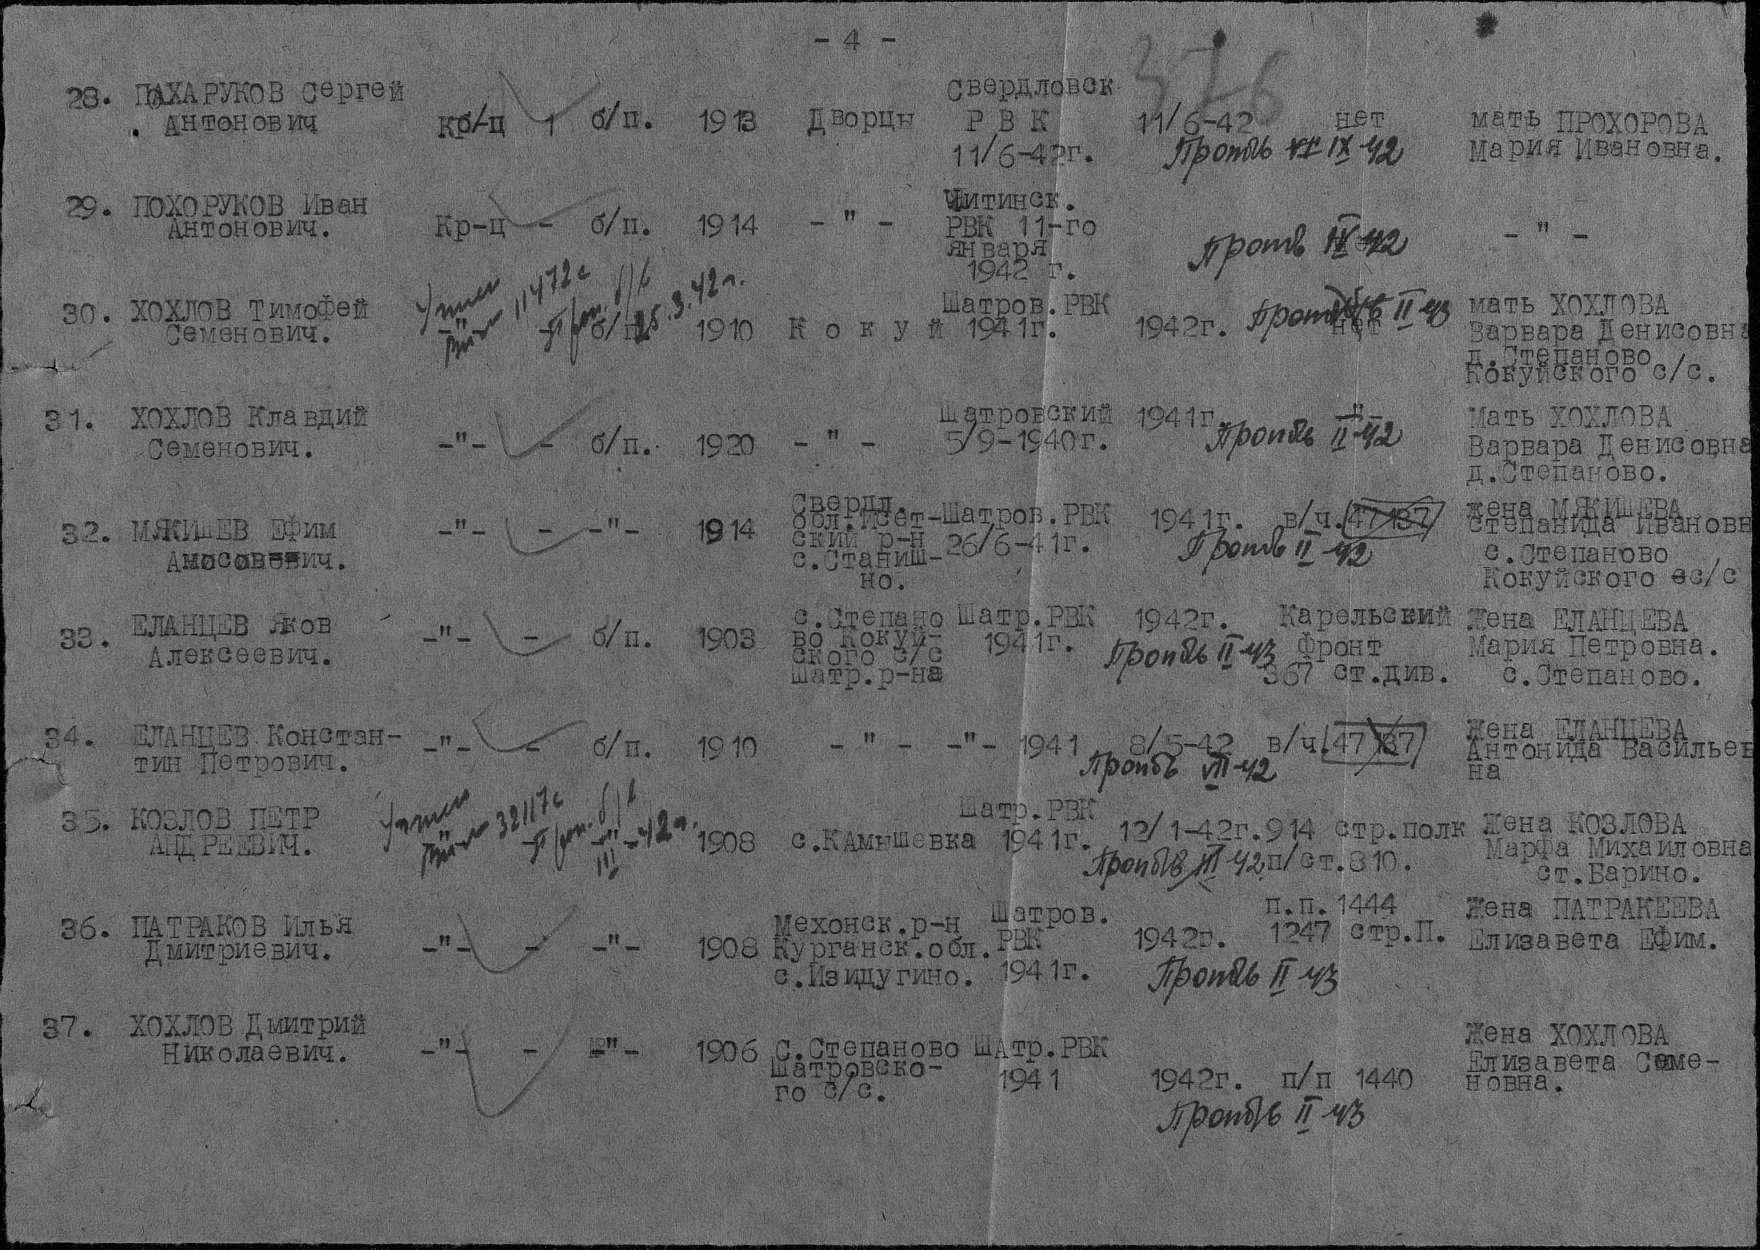 - 4 -
376
28. ПАХАРУКОВ Сергей Антонович Кр-ц 1 б/п. 1913 Дворцы Свердловск РВК 11/6-42г. 11/6-42 нет мать ПРОХОРОВА Мария Ивановна.
Проп б/в IX 42
29. ПОХОРУКОВ Иван Антонович. Кр-ц - б/п. 1914 - " - Читинск. РВК 11-го января 1942 г. - " -
Проп б/в IV 42
30. ХОХЛОВ Тимофей Семенович. -"- - б/п. 1910 Кокуй Шатров.РВК 1941г. 1942г. нет мать ХОХЛОВА Варвара Денисовна д.Степаново Кокуйского с/с.
Учтен 11472с Проп. б/в 25.3.42г.
Проп б/в II 43
31. ХОХЛОВ Клавдий Семенович. -"- - б/п. 1920 - " - Шатровский 5/9-1940г. 1941г. -"- Мать ХОХЛОВА Варвара Денисовна д.Степаново.
Проп б/в II-42
32. МЯКИШЕВ Ефим Амосович. -"- - -"- 1914 Свердл. обл.Исет-ский р-н с.Станиш-но. Шатров.РВК 26/6-41г. 1941г. в/ч. 47 137 жена МЯКИШЕВА Степанида Ивановн с.Степаново Кокуйского с/с
Проп б/в II-42
33. ЕЛАНЦЕВ Яков Алексеевич. -"- - б/п. 1903 с.Степано во Кокуй-ского с/с Шатр.р-на Шатр.РВК 1941г. 1942г. Карельский Фронт 367 ст.див. Жена ЕЛАНЦЕВА Мария Петровна. с.Степаново.
Проп б/в II 43
34. ЕЛАНЦЕВ Констан-тин Петрович. -"- - б/п. 1910 - " - -"- 1941 8/5-42 в/ч. 47 137 Жена ЕЛАНЦЕВА Антонида Васильев на
Проп б/в VII 42
35. КОЗЛОВ ПЕТР АНДРЕЕВИЧ. - -"- 1908 с.КАмышевка Шатр.РВК 1941г. 12/1-42г. 914 стр.полк п/ст.810. Жена КОЗЛОВА Марфа Михаиловна ст.Варино.
Учтен 32117с Проп. б/в III-42г.
Проп б/в III 42
36. ПАТРАКОВ Илья Дмитриевич. -"- - -"- 1908 Мехонск.р-н Курганск.обл. с.Изидугино. Шатров. РВК 1941г. 1942г. п.п. 1444 1247 стр.П. Жена ПАТРАКЕЕВА Елизавета Ефим.
Проп б/в II 43
37. ХОХЛОВ Дмитрий Николаевич. -"- - -"- 1906 С.Степаново Шатровско-го с/с. ШАтр.РВК 1941 1942г. п/п 1440 Жена ХОХЛОВА Елизавета Семе-новна.
Проп б/в II 43